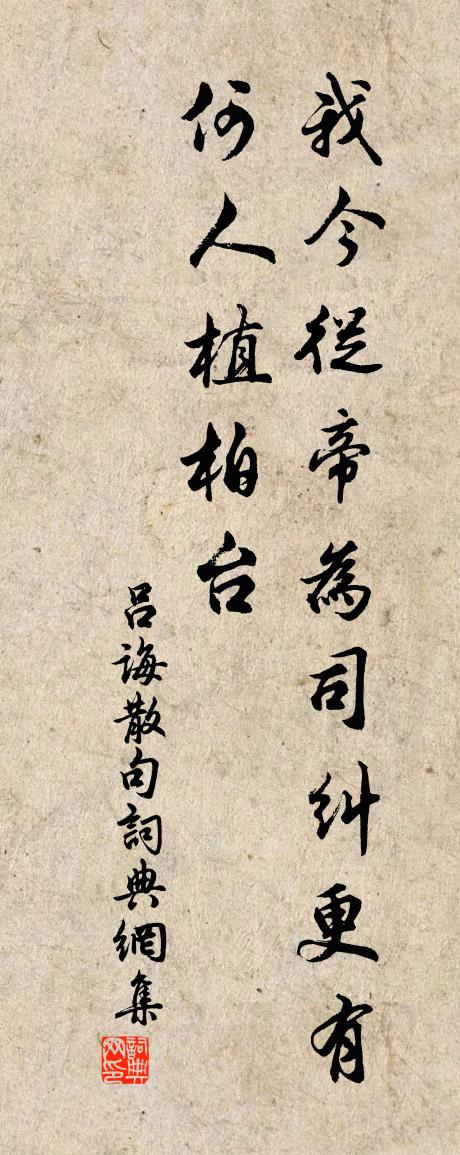 我今從帝為司糾更有
何人植柏台
呂誨散句詞典網集
詞典網印